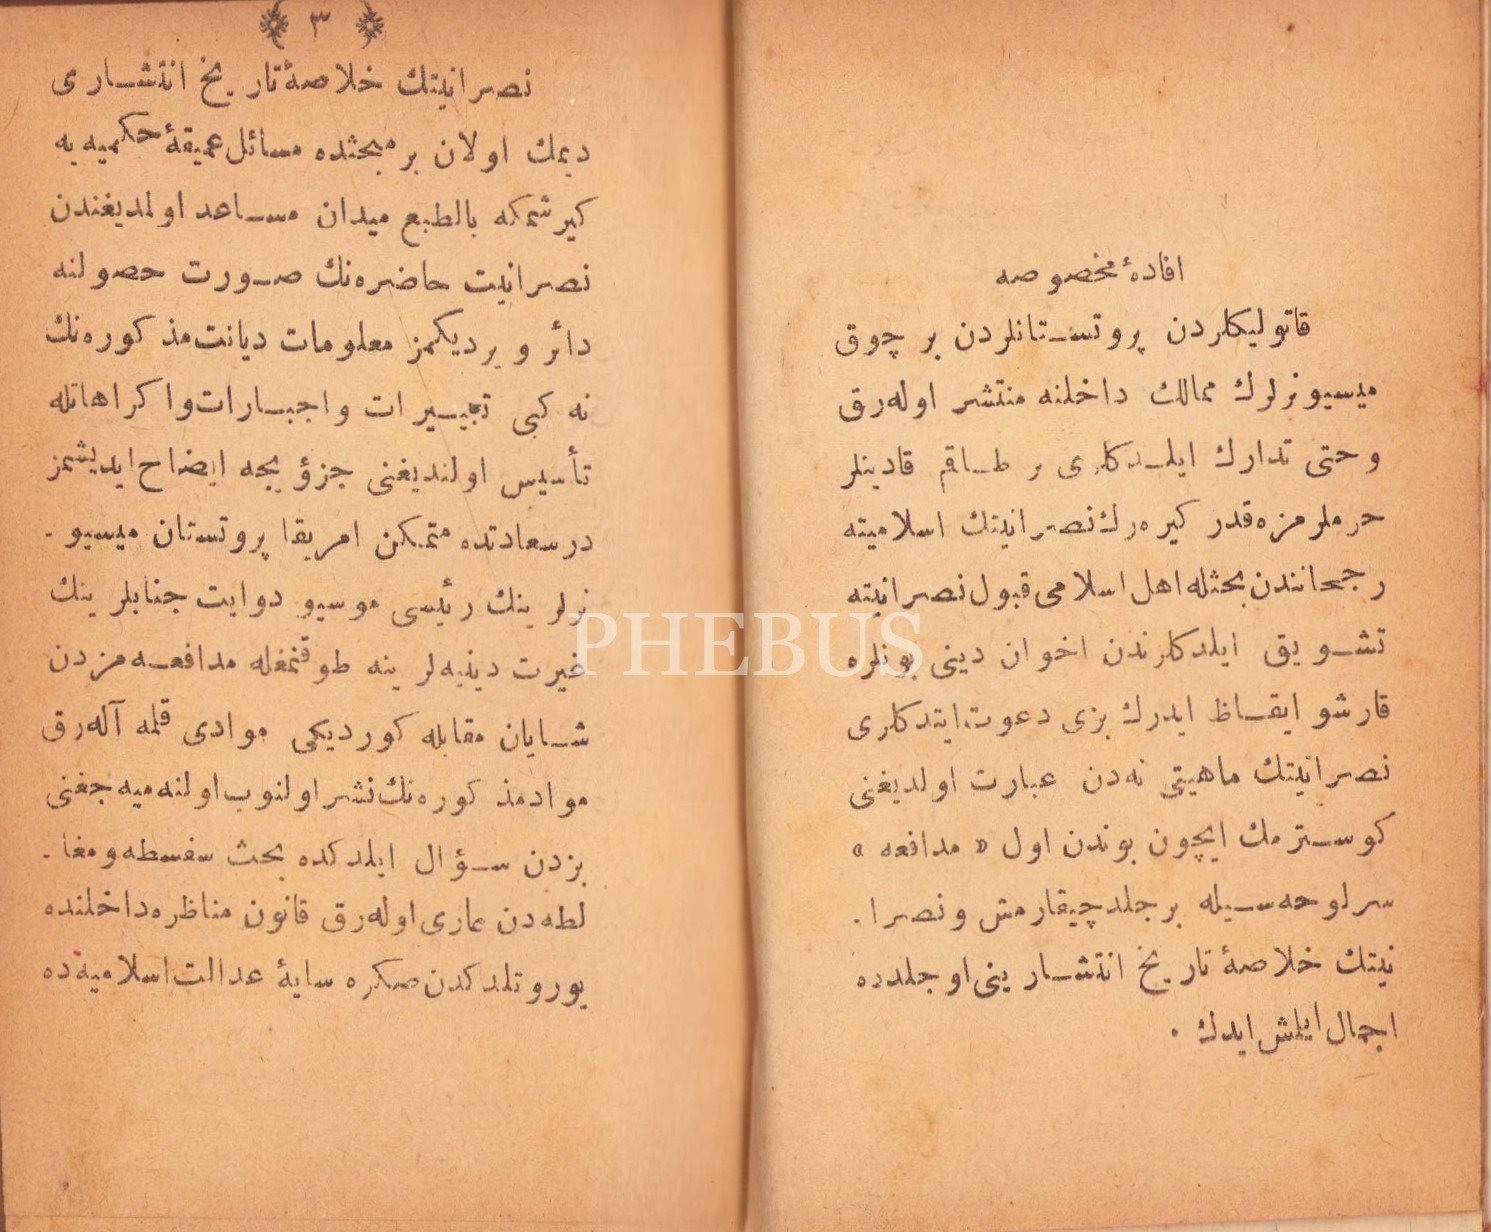 افادهٔ مخصوصه
قاتولیكلردن پروتستانلردن بر چوق
میسیونرلرك ممالك داخلنه منتشر اوله‌رق
و حتی تدارك ایلدكلری بر طاقم قادینلر
حرملرمزه قدر كیره‌رك نصرانیتك اسلامیته
رجحانندن بحثله اهل اسلامی قبول نصرانیته
تشویق ایلدكلرندن اخوان دینی بونلره
قارشو ایقاظ ایدرك بزی دعوت ایتدكلری
نصرانیتك ماهیتی نه‌دن عبارت اولدیغنی
كوسترمك ایچون بوندن اول « مدافعه »
سرلوحه‌سیله بر جلد چیقارمش و نصرا-
نیتك خلاصهٔ تاریخ انتشارینی او جلدده
اجمال ایلمش ایدك ۰
۳
نصرانیتك خلاصهٔ تاریخ انتشاری
دیمك اولان بر مبحثده مسائل عمیقهٔ حكمیه‌یه
كیرشمكه بالطبع میدان مساعد اولمدیغندن
نصرانیت حاضره‌نك صورت حصولنه
دائر ویردیكمز معلومات دیانت مذكوره‌نك
نه كبی تجبیرات و اجبارات و اكراهاتله
تأسیس اولندیغنی جزؤیجه ایضاح ایدیشمز
درسعادتده متمكن امریقا پروتستان میسیو-
نرلرینك رئیسی موسیو دوایت جنابلرینك
غیرت دینیه‌لرینه طوقنمغله مدافعه‌مزدن
شایان مقابله كوردیكی موادی قلمه آله‌رق
مواد مذكوره‌نك نشر اولنوب اولنه‌میه‌جغنی
بزدن سؤال ایلدكده بحث سفسطه و مغا-
لطه‌دن عاری اوله‌رق قانون مناظره داخلنده
یوروتلدكدن صكره سایهٔ عدالت اسلامیه‌ده
PHEBUS